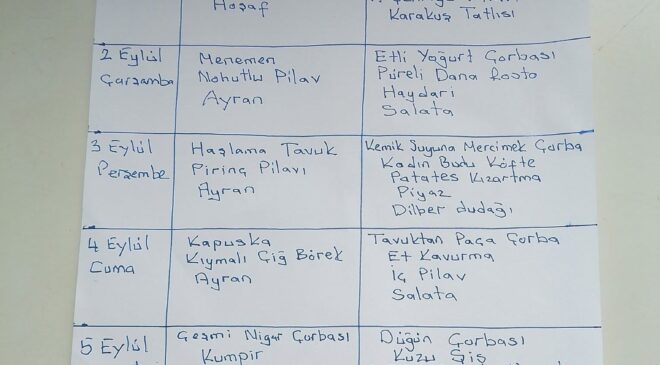 Hoşaf
Karakuş Tatlısı
2 Eylül
Çarşamba
Menemen
Nohutlu Pilav
Ayran
Etli Yoğurt Çorbası
Püreli Dana Rosto
Haydari
Salata
3 Eylül
Perşembe
Haşlama Tavuk
Pirinç Pilavı
Ayran
Kemik Suyuna Mercimek Çorba
Kadın Budu Köfte
Patates Kızartma
Piyaz
Dilber dudağı
4 Eylül
Cuma
Kapuska
Kıymalı Çiğ Börek
Ayran
Tavuktan Paça Çorba
Et Kavurma
İç Pilav
Salata
5 Eylül
Çeşmi Nigar Çorbası
Kumpir
Düğün Çorbası
Kuzu Şiş